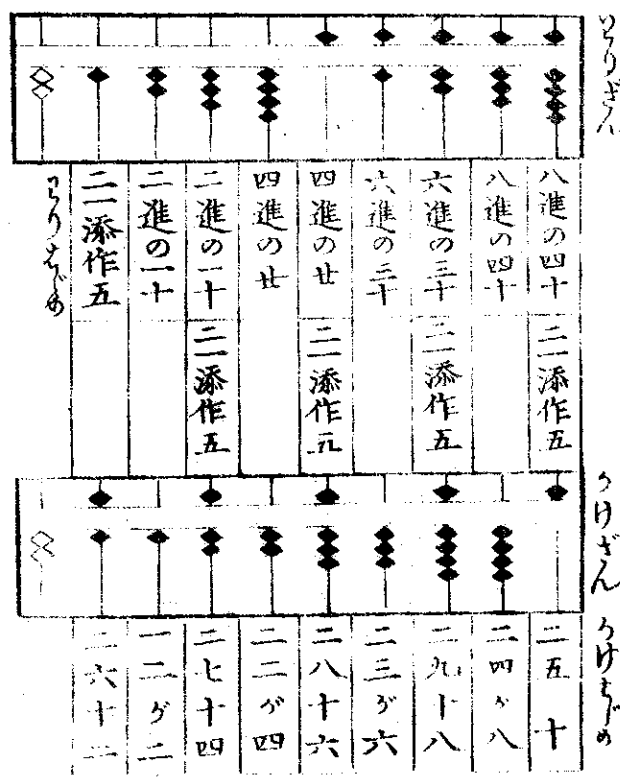 わりざん
八進の四十 二一添作五
八進の四十
六進の三十 二一添作五
六進の三十
四進の廿 二一添作五
四進の廿
二進の一十 二一添作五
二進の一十
二一添作五
わりはじめ
かけざん
かけはじめ
二五 十
二四が八
二九十八
二三が六
二八十六
二二が四
二七十四
一二が二
二六十二